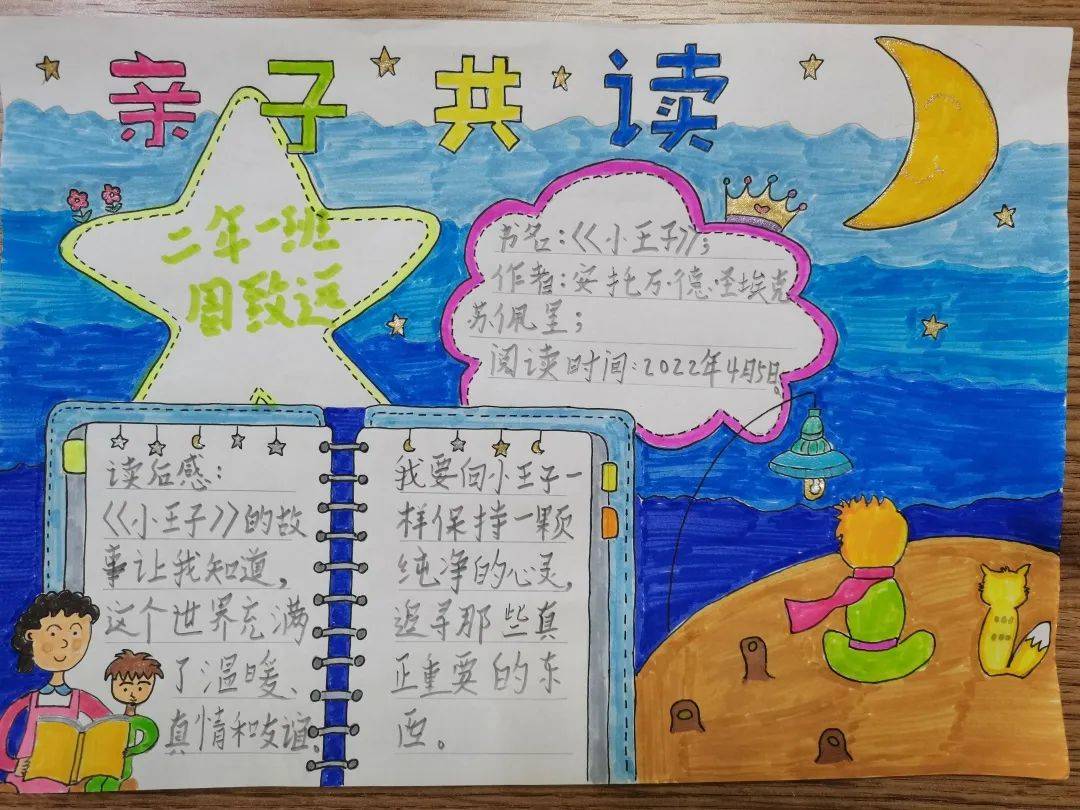 亲子共读
二年一班
周致远
书名:《小王子》;
作者:安托万·德·圣埃克
苏佩里;
阅读时间:2022年4月5日。
读后感:
《小王子》的故
事让我知道,
这个世界充满
了温暖、
真情和友谊,
我要向小王子一
样保持一颗
纯净的心灵,
追寻那些真
正重要的东
西。